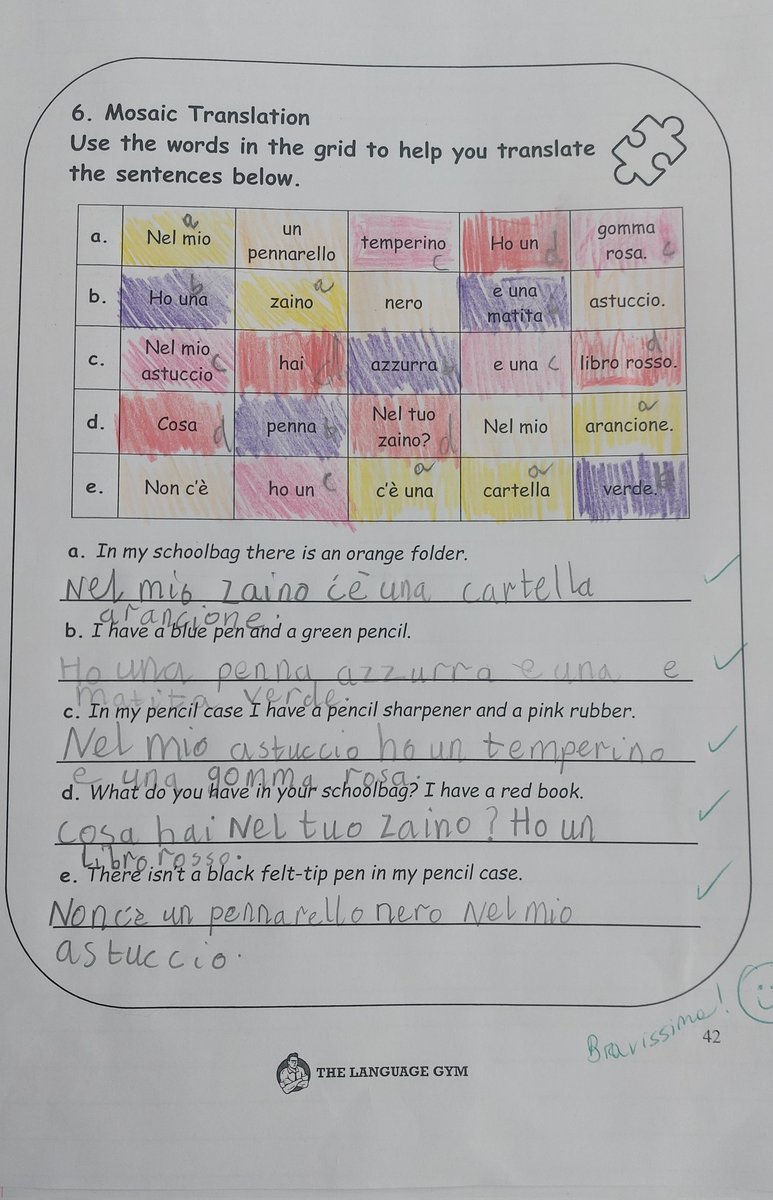 6. Mosaic Translation
Use the words in the grid to help you translate
the sentences below.
a. Nel mio a un pennarello temperino c Ho un d gomma rosa. c
b. Ho una b zaino a nero e una matita b astuccio.
c. Nel mio astuccio c hai d azzurra b e una c libro rosso. d
d. Cosa d penna b Nel tuo zaino? d Nel mio arancione. a
e. Non c'è ho un c c'è una a cartella a verde. b
a. In my schoolbag there is an orange folder.
Nel mio zaino c'è una cartella
arancione.
b. I have a blue pen and a green pencil.
Ho una penna azzurra e una e
matita verde.
c. In my pencil case I have a pencil sharpener and a pink rubber.
Nel mio astuccio ho un temperino
e una gomma rosa.
d. What do you have in your schoolbag? I have a red book.
Cosa hai Nel tuo zaino? Ho un
Libro rosso.
e. There isn't a black felt-tip pen in my pencil case.
Non c'è un pennarello nero Nel mio
astuccio.
Bravissima!
42
THE LANGUAGE GYM